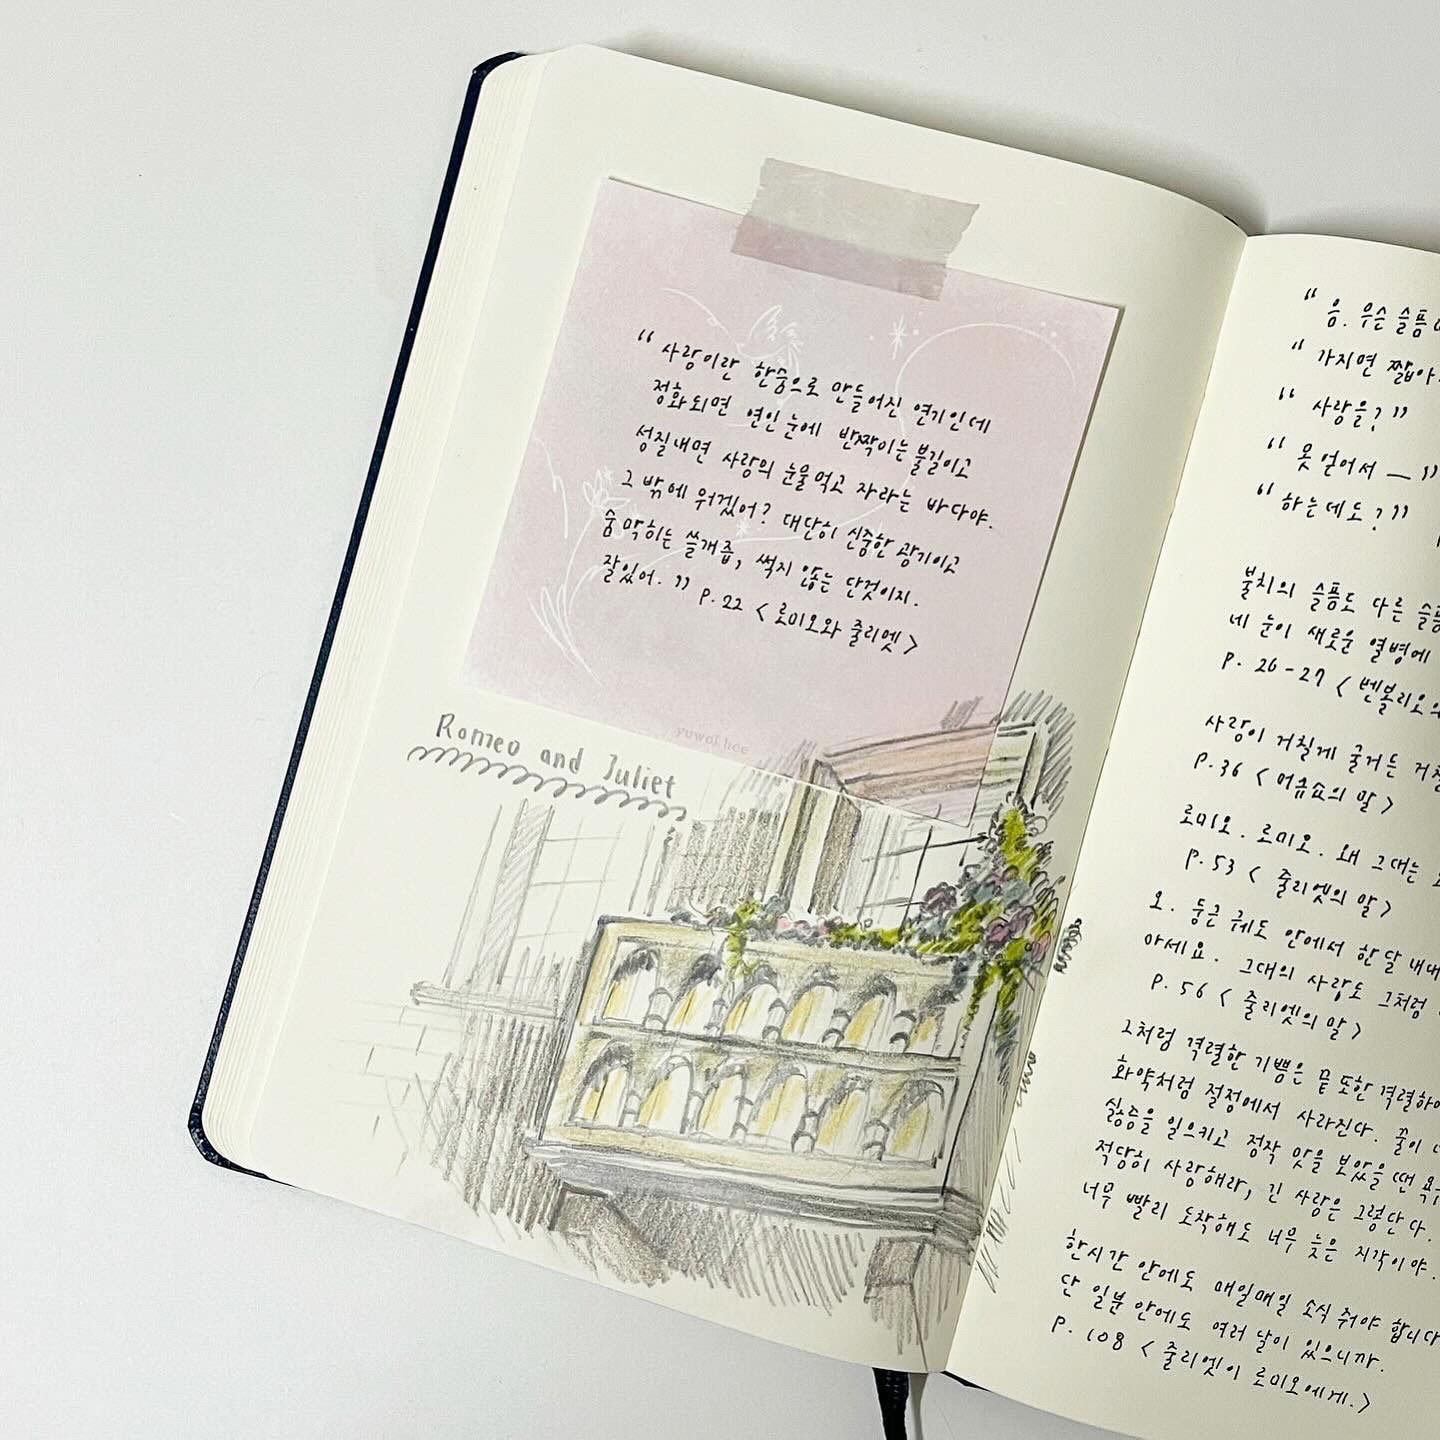 “사랑이란 한숨으로 만들어진 연기인데
정화되면 연인 눈에 반짝이는 불길이고
성질내면 사랑의 눈물 먹고 자라는 바다야.
그 밖에 뭐겠어? 대단히 신중한 광기이고
숨 막히는 쓸개즙, 썩지 않는 단것이지.
잘있어.” P.22 <로미오와 줄리엣>
yuwol hee
Romeo and Juliet
“음. 무슨 슬픔이
“가지면 짧아
“사랑을?”
“못 얻어서 —”
“하는데도?”
불치의 슬픔도 다른
네 눈이 새로운 열병에
P. 26-27 <벤볼리오
사랑이 거칠게 굴거든
P.36 <머큐쇼의 말>
로미오. 로미오. 왜 그대는
P.53 <줄리엣의 말>
오. 둥근 궤도 안에서 한달 내내
아세요. 그대의 사랑도 그처럼
P.56 <줄리엣의 말>
그처럼 격렬한 기쁨은 끝 또한 격렬하
화약처럼 절정에서 사라진다. 꿀이
싫증을 일으키고 정작 맛을 보았을 땐
적당히 사랑해라, 긴 사랑은 그렇단다.
너무 빨리 도착해도 너무 늦은 지각이야.
한시간 안에도 매일매일 소식 줘야 합니다
단 일분 안에도 여러 날이 있으니까.
P. 108 <줄리엣이 로미오에게.>